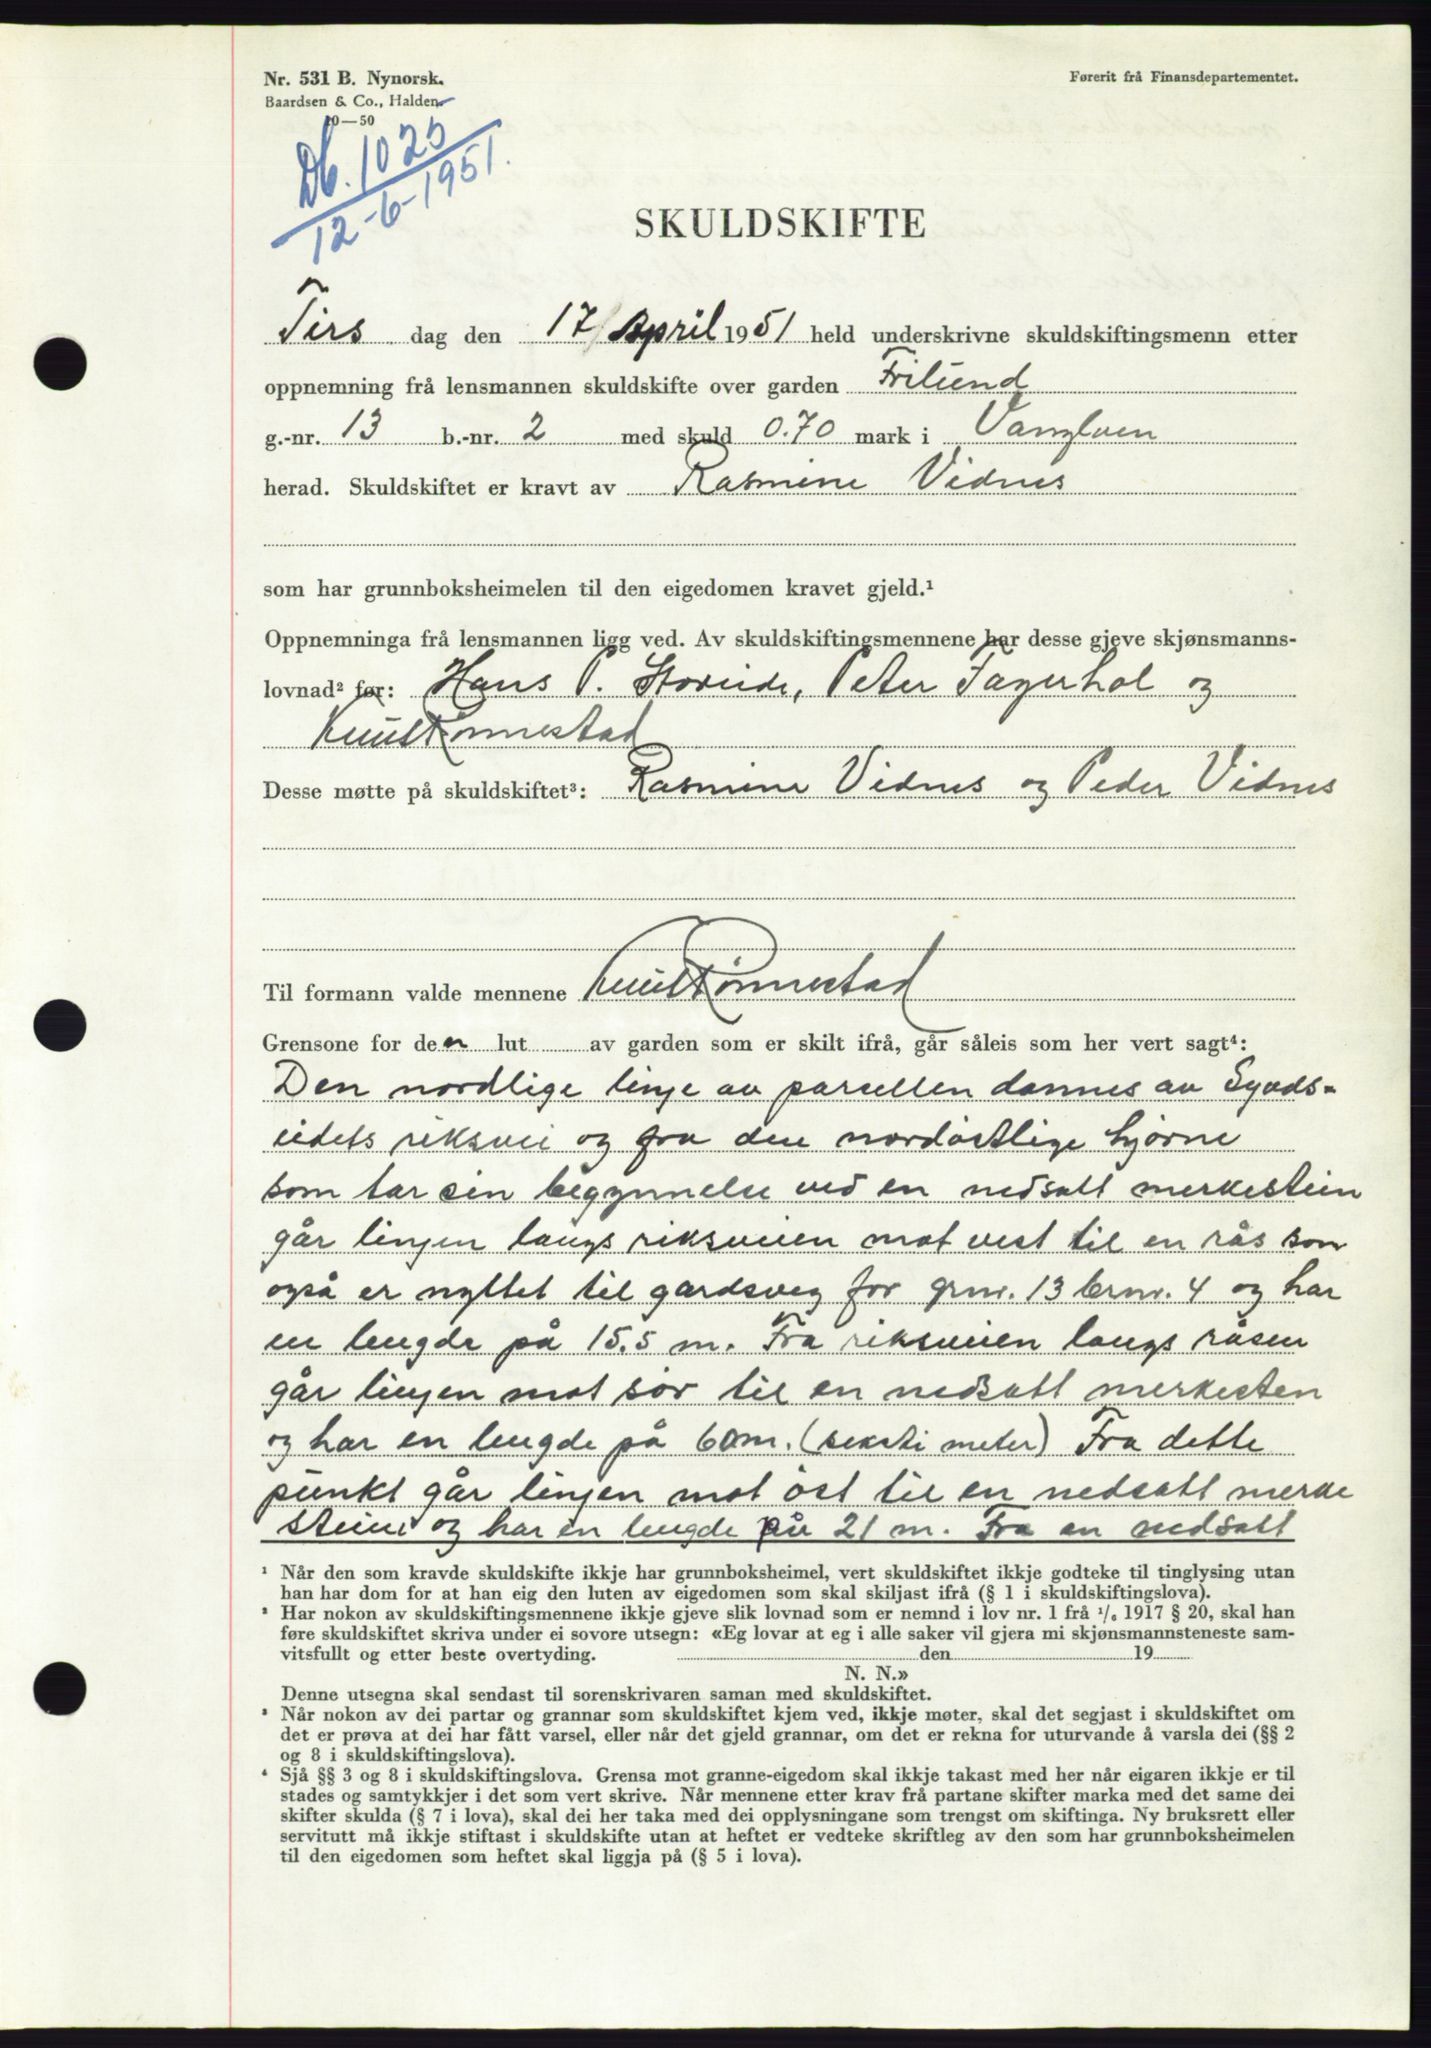 Nr. 531 B. Nynorsk.
Baardsen & Co., Halden.
10—50
Førerit frå Finansdepartementet.
Db. 1025
12-6-1951.
SKULDSKIFTE
Tirs dag den 17/ April 1951 held underskrivne skuldskiftingsmenn etter
oppnemning frå lensmannen skuldskifte over garden Frilund
g.-nr. 13 b.-nr. 2 med skuld 0.70 mark i Vanylven
herad. Skuldskiftet er kravt av Rasmine Vidnes
som har grunnboksheimelen til den eigedomen kravet gjeld.¹
Oppnemninga frå lensmannen ligg ved. Av skuldskiftingsmennene har desse gjeve skjønsmanns-
lovnad² før: Hans P. Storeide, Peter Fagerhol og
Knut Rönnestad
Desse møtte på skuldskiftet³: Rasmine Vidnes og Peder Vidnes
Til formann valde mennene Knut Rönnestad
Grensone for den lut av garden som er skilt ifrå, går såleis som her vert sagt⁴:
Den nordlige linje av parsellen dannes av Syvds-
eidets riksvei og fra den nordöstlige hjörne
som tar sin begynnelse ved en nedsatt merkestein
går linjen langs riksveien mot vest til en rås som
også er nyttet til gardsveg for grnr. 13 brnr. 4 og har
en lengde på 15.5 m. Fra riksveien langs råsen
går linjen mot sör til en nedsatt merkesten
og har en lengde på 60m. (seksti meter) Fra dette
punkt går linjen mot öst til en nedsatt merke
steine og har en lengde på 21 m. Fra en nedsatt
¹ Når den som kravde skuldskifte ikkje har grunnboksheimel, vert skuldskiftet ikkje godteke til tinglysing utan
han har dom for at han eig den luten av eigedomen som skal skiljast ifrå (§ 1 i skuldskiftingslova).
² Har nokon av skuldskiftingsmennene ikkje gjeve slik lovnad som er nemnd i lov nr. 1 frå ¹/₆ 1917 § 20, skal han
føre skuldskiftet skriva under ei sovore utsegn: «Eg lovar at eg i alle saker vil gjera mi skjønsmannsteneste sam-
vitsfullt og etter beste overtyding. den 19
N. N.»
Denne utsegna skal sendast til sorenskrivaren saman med skuldskiftet.
³ Når nokon av dei partar og grannar som skuldskiftet kjem ved, ikkje møter, skal det segjast i skuldskiftet om
det er prøva at dei har fått varsel, eller når det gjeld grannar, om det er rekna for uturvande å varsla dei (§§ 2
og 8 i skuldskiftingslova).
⁴ Sjå §§ 3 og 8 i skuldskiftingslova. Grensa mot granne-eigedom skal ikkje takast med her når eigaren ikkje er til
stades og samtykkjer i det som vert skrive. Når mennene etter krav frå partane skifter marka med det same dei
skifter skulda (§ 7 i lova), skal dei her taka med dei opplysningane som trengst om skiftinga. Ny bruksrett eller
servitutt må ikkje stiftast i skuldskifte utan at heftet er vedteke skriftleg av den som har grunnboksheimelen
til den eigedomen som heftet skal liggja på (§ 5 i lova).